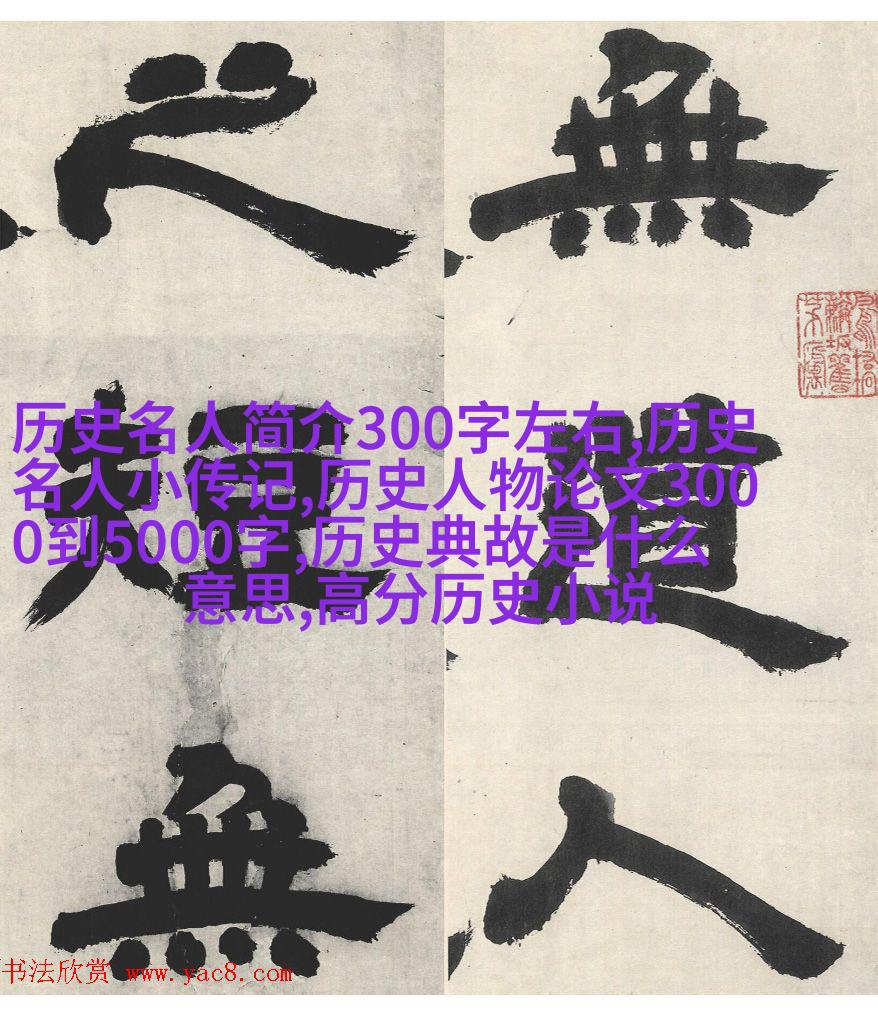 無道人
之短無
历史名人简介300字左右,历史
名人小传记,历史人物论文300
0到5000字,历史典故是什么
意思,高分历史小说
书法欣赏 www.yac8.com